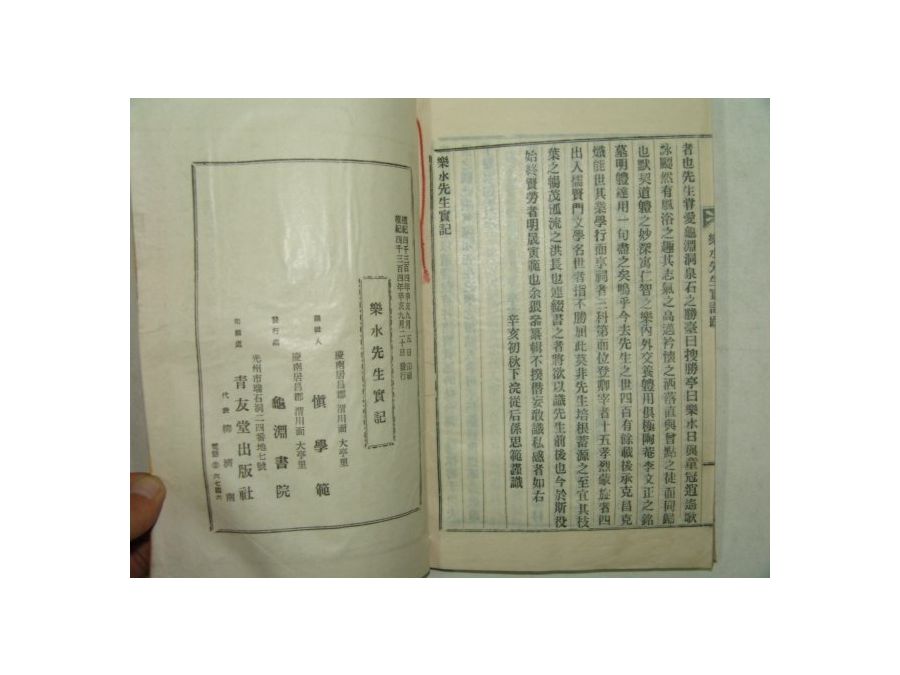 樂水先生實記跋
者也先生甞愛龜淵洞泉石之勝臺曰搜勝亭曰樂水日與童冠逍遙歌
詠飄然有風浴之趣其志氣之高邁衿懷之洒落直與曾點之徒而同歸
也默契道體之妙深寓仁智之樂內外交養體用俱極陶菴李文正之銘
墓明體達用一句盡之矣嗚乎今去先生之世四百有餘載後承克昌克
熾能世其業學行而享祠者三科第而位登卿宰者十五孝烈蒙旋者四
出入儒賢門文學名世者指不勝屈此莫非先生培根蓄源之至宜其枝
葉之暢茂派流之洪長也連綴書之者將欲以識先生前後也今於斯役
始終賢勞者明晟寅範也余猥忝纂輯不揆僭妄敢識私感者如右
辛亥初秋下浣從后係思範謹識
樂水先生實記
檀紀四千三百四年辛亥九月 五日 印刷
檀紀四千三百四年辛亥九月二十日 發行
樂水先生實記
慶南居昌郡 渭川面 大亭里
編輯人 愼學範
慶南居昌郡 渭川面 大亭里
發行處 龜淵書院
光州市瑞石洞二四番地七號
印刷處 靑友堂出版社
代表 柳濟南